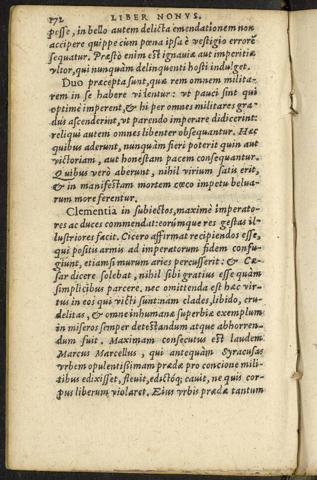 272 LIBER NONVS.
posse, in bello autem delicta emendationem non
accipere quippe cùm pœna ipsa è vestigio errorẽ
sequatur. Præstò enim est ignauiæ aut imperitiæ
vltor, qui nunquàm delinquenti hosti indulget.
Duo præcepta sunt, quæ rem omnem milita-
rem in se habere videntur: vt pauci sint qui
optimè imperent, & hi per omnes militares gra-
dus ascenderint, vt parendo imperare didicerint:
reliqui autem omnes libenter obsequantur. Hæc
quibus aderunt, nunquàm fieri poterit quin aut
victoriam, aut honestam pacem consequantur.
Quibus verò aberunt, nihil virium satis erit,
& in manifestam mortem cœco impetu belua-
rum more ferentur.
Clementia in subiectos, maximè imperato-
res ac duces commendat: eorúmque res gestas il-
lustriores facit. Cicero affirmat recipiendos esse,
qui positis armis ad imperatorum fidem confu-
giunt, etiamsi murum aries percusserit: & Cæ-
sar dicere solebat, nihil sibi gratius esse quàm
simplicibus parcere. nec omittenda est hæc vir-
tus in eos qui victi sunt: nam clades, libido, cru-
delitas, & omne inhumanæ superbiæ exemplum
in miseros semper detestandum atque abhorren-
dum fuit. Maximam consecutus est laudem
Marcus Marcellus, qui antequàm Syracusas
vrbem opulentissimam prædæ pro concione mili-
tibus edixisset, fleuit, edictóq; cauit, ne quis cor-
pus liberum violaret. Eius vrbis prædæ tantum